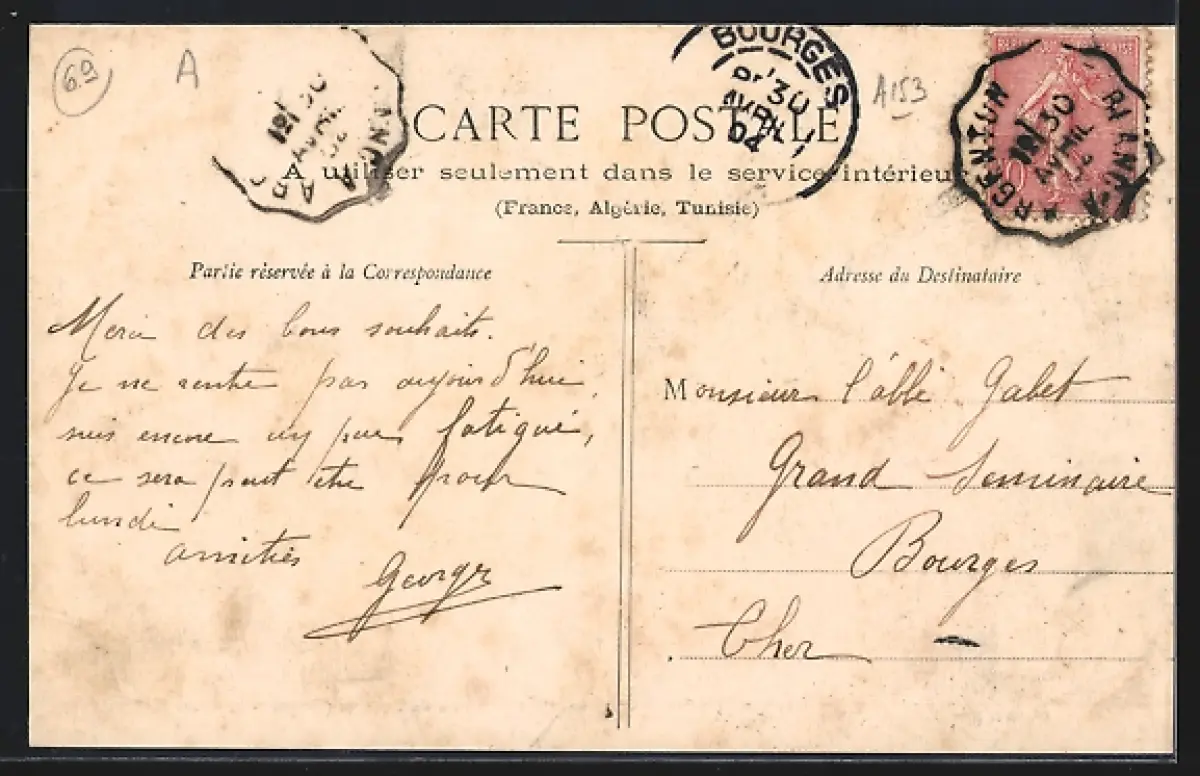 69
A
BOURGES
30
AVRIL
04
A153
CARTE POSTALE
A utiliser seulement dans le service intérieur
(France, Algérie, Tunisie)
ARGENTON
BLANC-A
30
AVRIL
04
Partie réservée à la Correspondance
Merci des bons souhaits.
Je ne rentre pas aujourd'hui
suis encore un peu fatigué,
ce sera peut être pour
lundi
amitiés
George
Adresse du Destinataire
Monsieur l'abbé Gabet
Grand Seminaire
Bourges
Cher